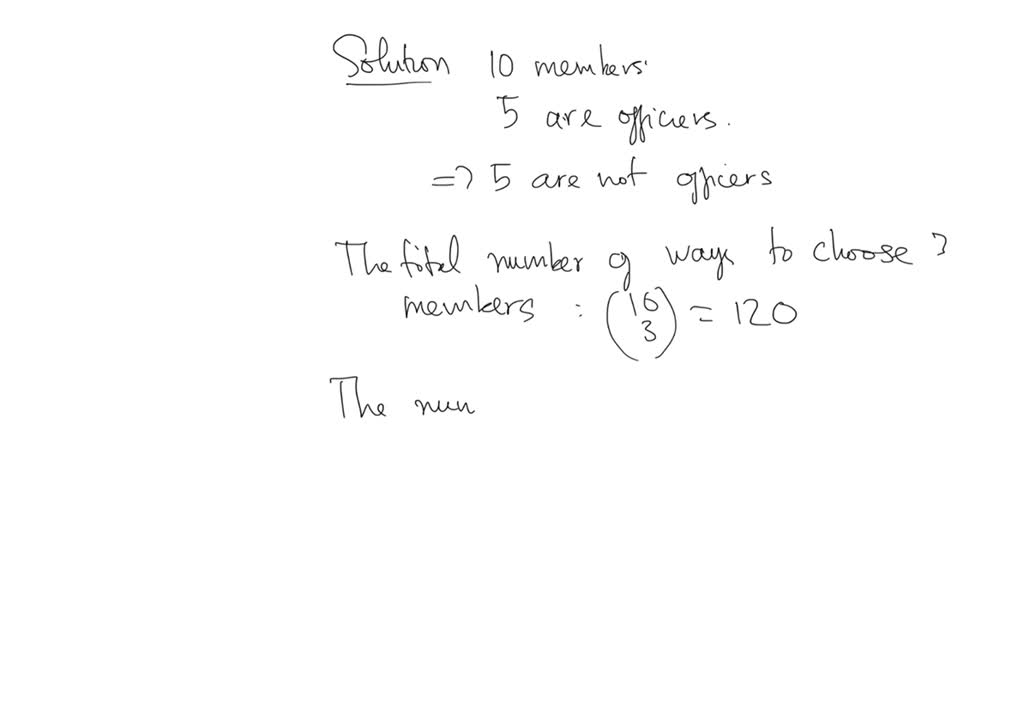 Solution 10 members.
5 are officers.
=> 5 are not officers
The total number of ways to choose 3
members : (10 3) = 120
The num